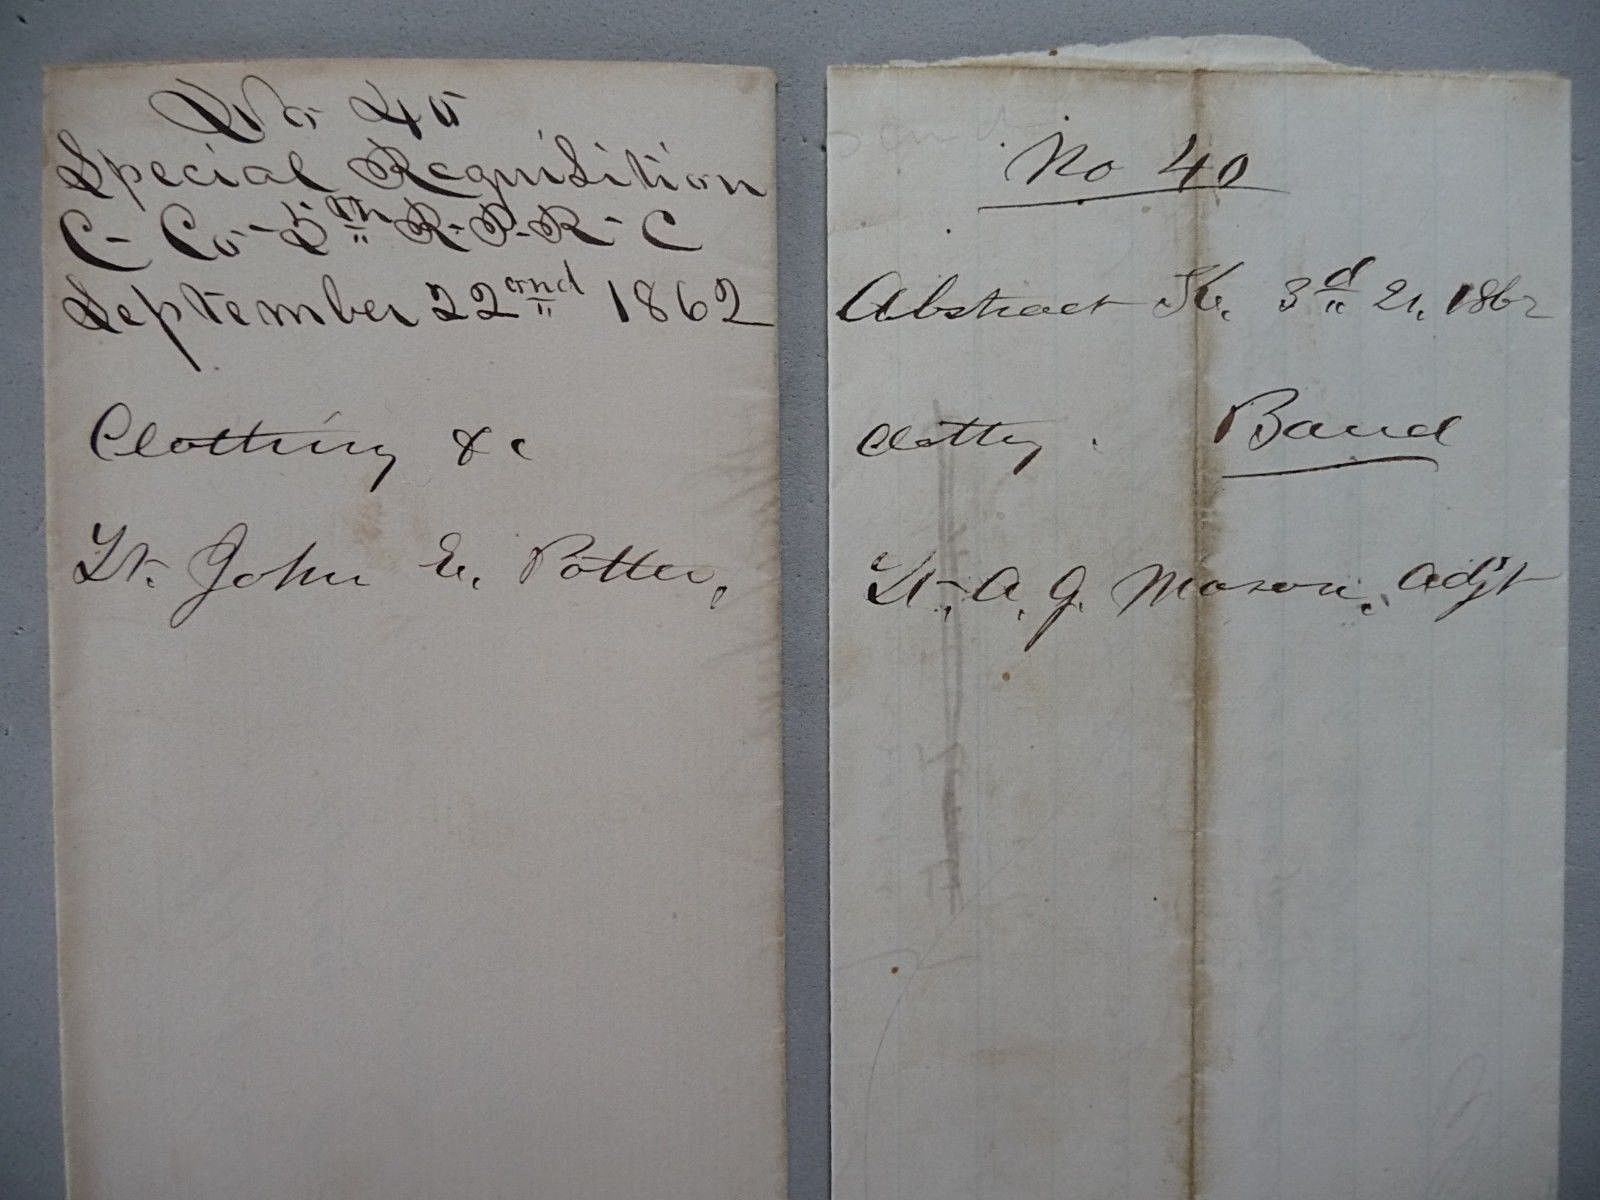 No 40
Special Requisition
C- Co- 5th R-P-R-C
September 22ond 1862
Clothing &c
Lt. John E. Potter,
No 40
Abstract K. 3d Qr. 1862
Clothg. Band
Lt. A. J. Mason, Adjt